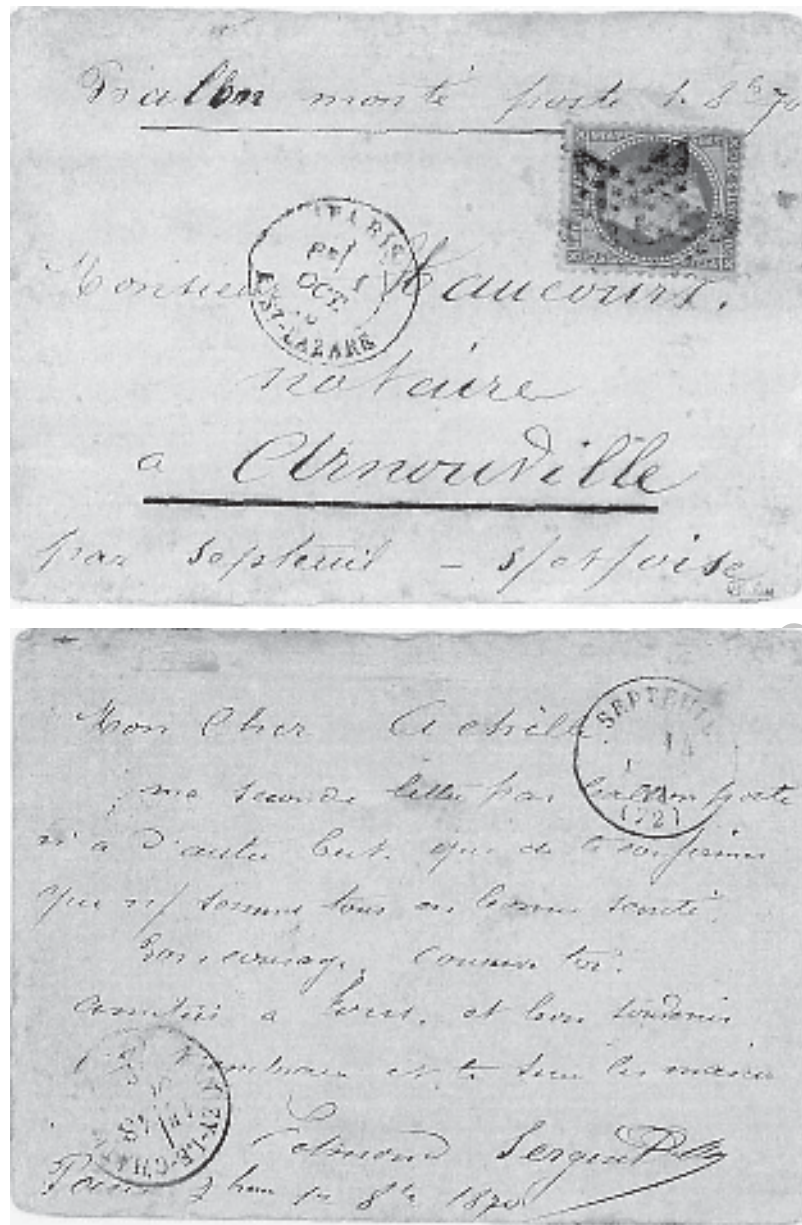 Ballon monté poste 1. 8bre 70
PARIS
OCT
ST-LAZARE
Monsieur Haucourt.
notaire
a Arnouville
par Septeuil - s/et/oise
Mon Cher Achille
SEPTEUIL
14
(72)
ma seconde lettre par ballon poste
n'a d'autre but que de te confirmer
que n/ sommes tous en bonne santé.
Bon courage, conserve toi.
amitiés à tous, et bon souvenir
et te serre les mains
Edmond Sergent
Paris 1er 8bre 1870